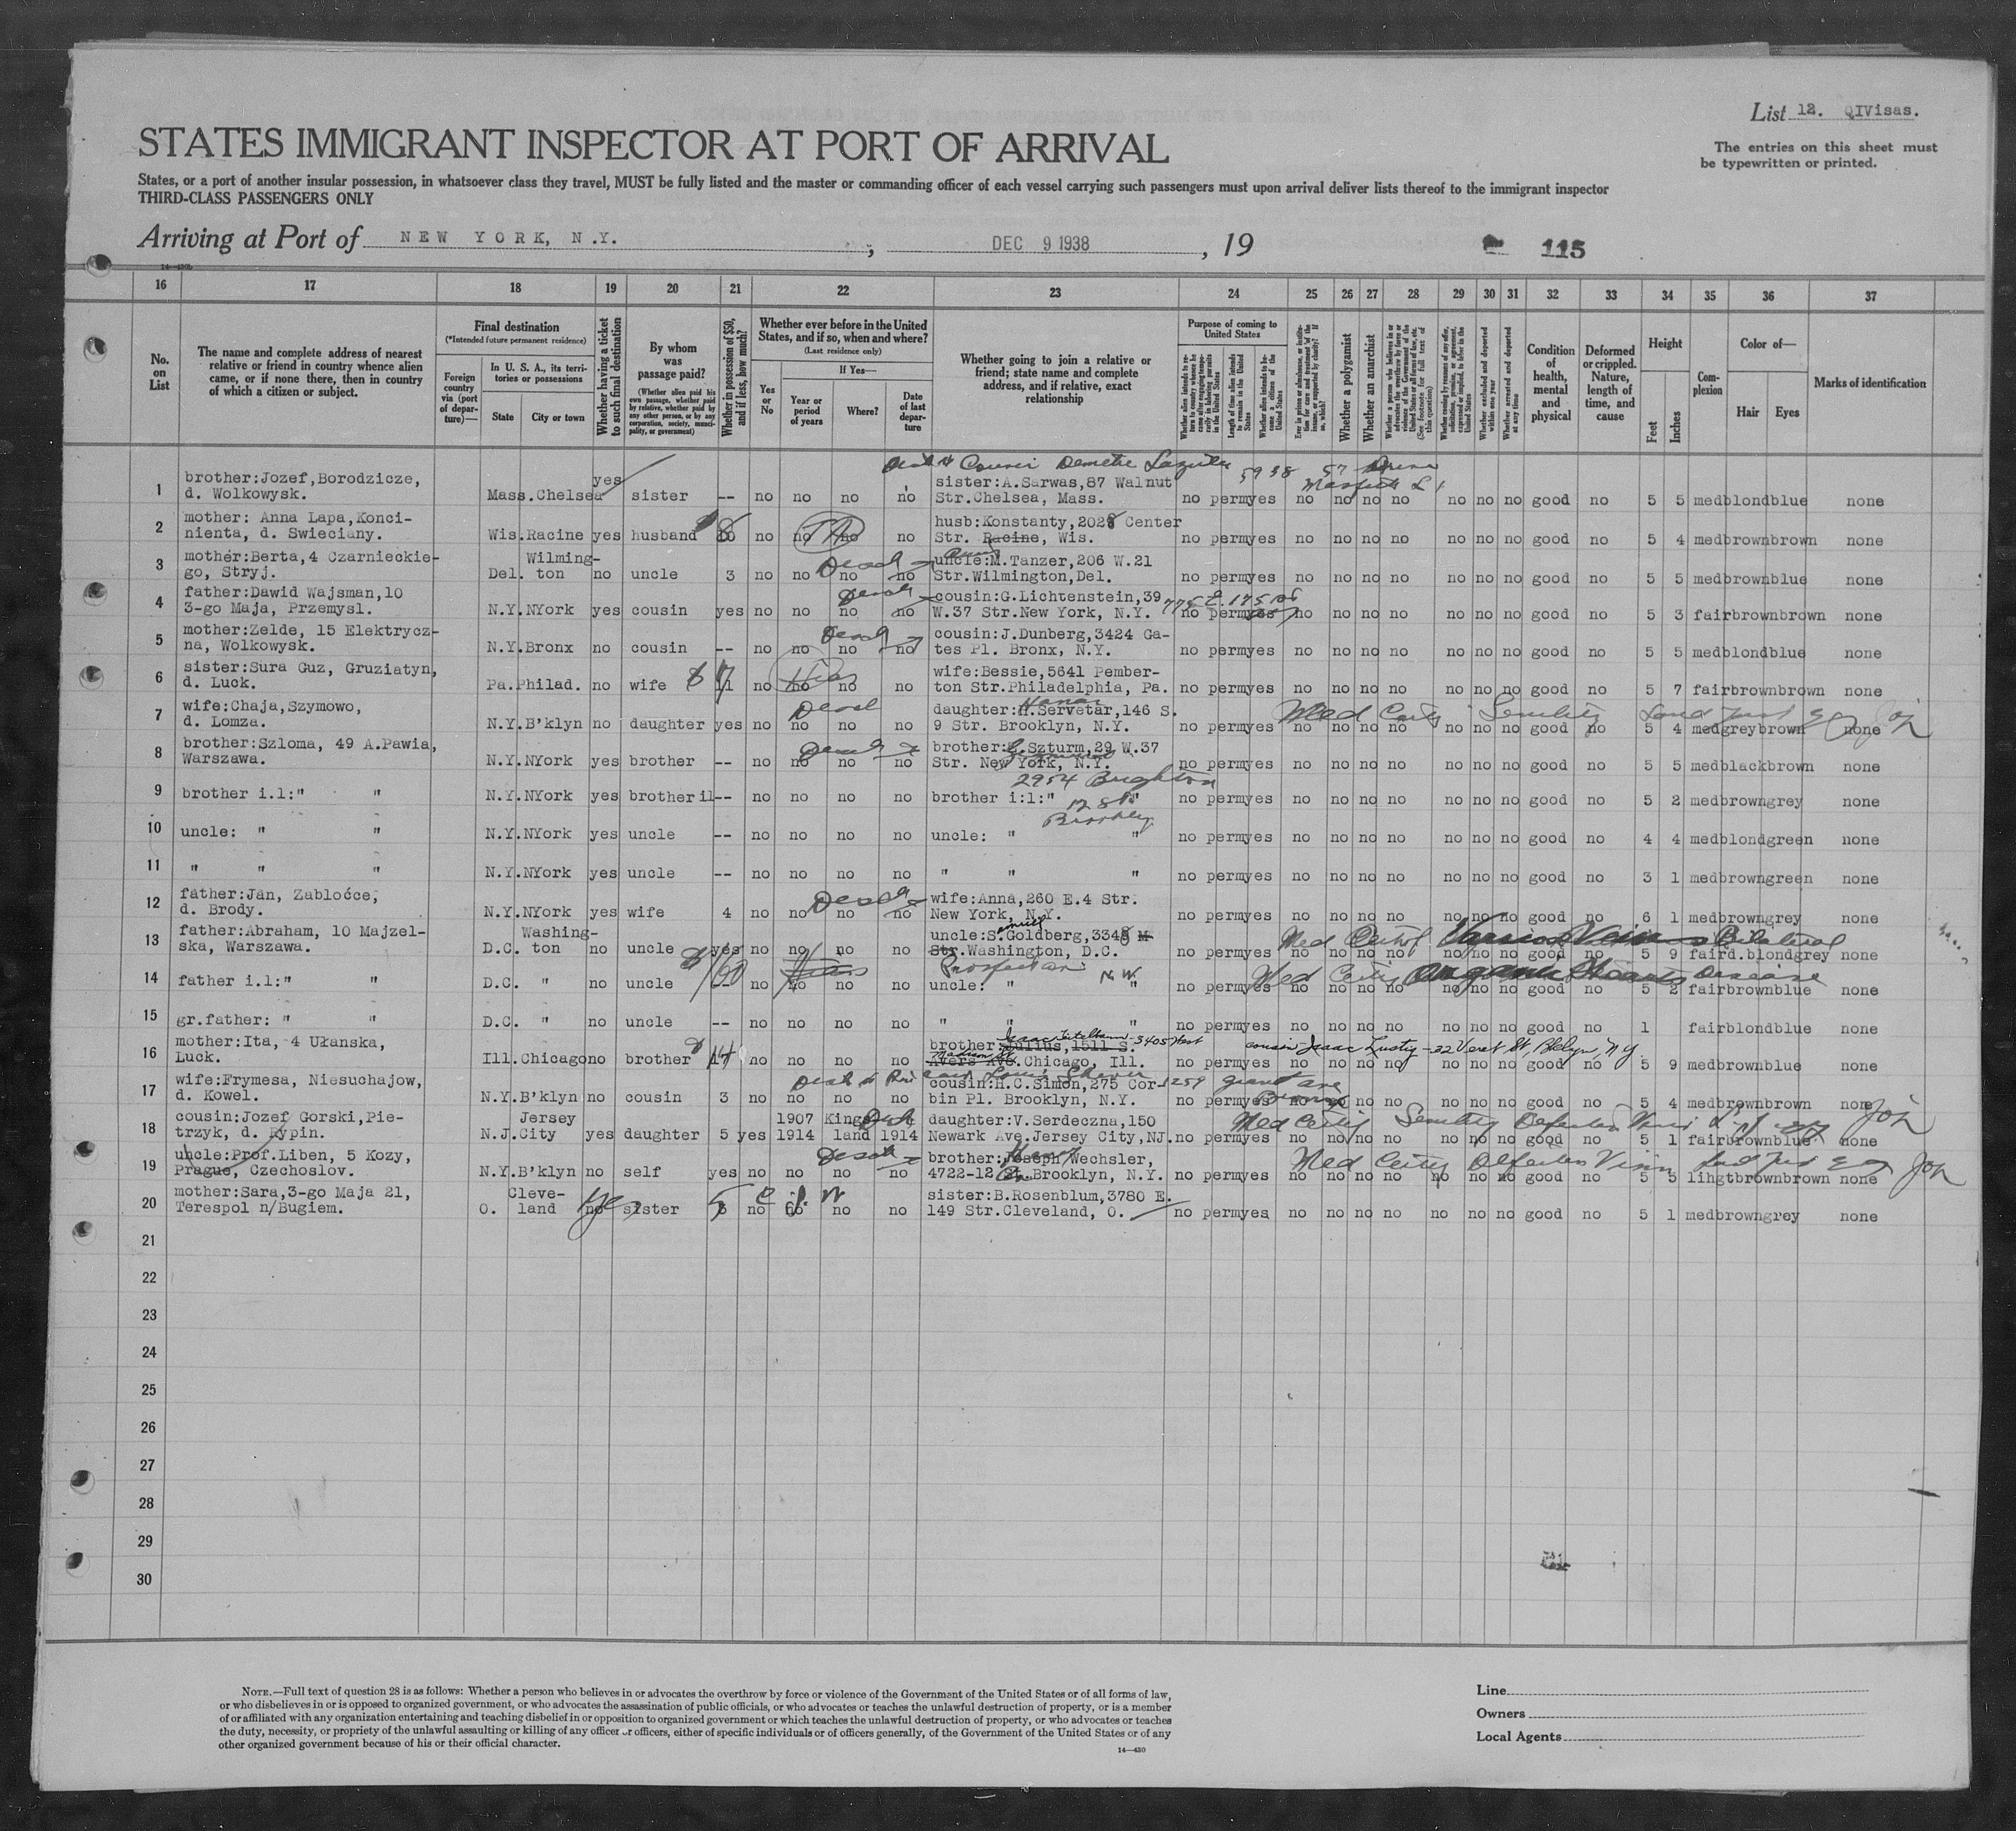 List 12. QIVisas.
STATES IMMIGRANT INSPECTOR AT PORT OF ARRIVAL
The entries on this sheet must
be typewritten or printed.
States, or a port of another insular possession, in whatsoever class they travel, MUST be fully listed and the master or commanding officer of each vessel carrying such passengers must upon arrival deliver lists thereof to the immigrant inspector
THIRD-CLASS PASSENGERS ONLY
Arriving at Port of NEW YORK, N.Y. , DEC 9 1938 , 19 115
16 17 18 19 20 21 22 23 24 25 26 27 28 29 30 31 32 33 34 35 36 37
No. on List
The name and complete address of nearest relative or friend in country whence alien came, or if none there, then in country of which a citizen or subject.
Final destination
(*Intended future permanent residence)
Foreign country via (port of departure)—
In U. S. A., its territories or possessions
State
City or town
Whether having a ticket to such final destination
By whom was passage paid?
(Whether alien paid his own passage, whether paid by relative, whether paid by any other person, or by any corporation, society, municipality, or government)
Whether in possession of $50, and if less, how much?
Whether ever before in the United States, and if so, when and where?
(Last residence only)
Yes or No
If Yes—
Year or period of years
Where?
Date of last departure
Whether going to join a relative or friend; state name and complete address, and if relative, exact relationship
Purpose of coming to United States
Length of time alien intends to remain in the United States
Whether alien intends to become a citizen of the United States
Whether a polygamist
Whether an anarchist
(See footnote for full text of this question)
Whether excluded and deported within one year
Whether arrested and deported at any time
Condition of health, mental and physical
Deformed or crippled. Nature, length of time, and cause
Height
Feet
Inches
Complexion
Color of—
Hair
Eyes
Marks of identification
5938 57
1 brother:Jozef,Borodzicze, yes sister:A.Sarwas,87 Walnut
d. Wolkowysk. Mass.Chelsea sister -- no no no no Str.Chelsea, Mass. no permyes no no no no no no no good no 5 5 medblondblue none
2 mother: Anna Lapa,Konci- husb:Konstanty,2028 Center
nienta, d. Swieciany. Wis.Racine yes husband no no no no Str. Racine, Wis. no permyes no no no no no no no good no 5 4 medbrownbrown none
3 mother:Berta,4 Czarnieckie- Wilming- uncle:M.Tanzer,206 W.21
go, Stryj. Del. ton no uncle 3 no no no no Str.Wilmington,Del. no permyes no no no no no no no good no 5 5 medbrownblue none
4 father:Dawid Wajsman,10 cousin:G.Lichtenstein,39
3-go Maja, Przemysl. N.Y.NYork yes cousin yes no no no no W.37 Str.New York, N.Y. no permyes no no no no no no no good no 5 3 fairbrownbrown none
5 mother:Zelde, 15 Elektrycz- cousin:J.Dunberg,3424 Ga-
na, Wolkowysk. N.Y.Bronx no cousin -- no no no no tes Pl. Bronx, N.Y. no permyes no no no no no no no good no 5 5 medblondblue none
6 sister:Sura Guz, Gruziatyn, wife:Bessie,5641 Pember-
d. Luck. Pa.Philad. no wife no no no no ton Str.Philadelphia, Pa. no permyes no no no no no no no good no 5 7 fairbrownbrown none
7 wife:Chaja,Szymowo, daughter:H.Servetar,146 S.
d. Lomza. N.Y.B'klyn no daughter yes no no no no 9 Str. Brooklyn, N.Y. no permyes no no no no no no no good no 5 4 medgreybrown none
Med Certif Senility
8 brother:Szloma, 49 A.Pawia, Szturm,29 W.37
Warszawa. N.Y.NYork yes brother -- no no no no Str. New York, N.Y. no permyes no no no no no no no good no 5 5 medblackbrown none
2954 Brighton
9 brother i.l:" " N.Y.NYork yes brother il-- no no no no brother i:l:" " no permyes no no no no no no no good no 5 2 medbrowngrey none
10 uncle: " " N.Y.NYork yes uncle -- no no no no uncle: " " no permyes no no no no no no no good no 4 4 medblondgreen none
11 " " " N.Y.NYork yes uncle -- no no no no " " " no permyes no no no no no no no good no 3 1 medbrowngreen none
12 father:Jan, Zabloćce, wife:Anna,260 E.4 Str.
d. Brody. N.Y.NYork yes wife 4 no no no no New York, N.Y. no permyes no no no no no no no good no 6 1 medbrowngrey none
13 father:Abraham, 10 Majzel- Washing- uncle:S.Goldberg,3348 M
ska, Warszawa. D.C. ton no uncle yes no no no no Str.Washington, D.C. no permyes no no no no no no no good no 5 9 faird.blondgrey none
Med Certif Varicose Veins Bilateral
14 father i.l:" " D.C. " no uncle no no no no uncle: " " no permyes no no no no no no no good no 5 2 fairbrownblue none
N.W. Med Certif Organic Heart Disease
15 gr.father: " " D.C. " no uncle -- no no no no " " " no permyes no no no no no no no good no 1 fairblondblue none
16 mother:Ita, 4 Ułanska, brother:Julius,1511 S. 3405 West cousin Isaac Lustig - 32 Veret St, Bklyn, N.Y.
Luck. Ill.Chicago no brother 14 no no no no Avers Ave.Chicago, Ill. no permyes no no no no no no no good no 5 9 medbrownblue none
Madison St
17 wife:Frymesa, Niesuchajow, cousin:H.C.Simon,275 Cor- 1259 grant ave
d. Kowel. N.Y.B'klyn no cousin 3 no no no no bin Pl. Brooklyn, N.Y. no permyes no no no no no no no good no 5 4 medbrownbrown none
Bronx
18 cousin:Jozef Gorski,Pie- Jersey 1907 daughter:V.Serdeczna,150
trzyk, d. Rypin. N.J.City yes daughter 5 yes 1914 land 1914 Newark Ave.Jersey City,NJ. no permyes no no no no no no no good no 5 1 fairbrownblue none
Med Certif Senility Defective Vision
19 uncle:Prof.Liben, 5 Kozy, brother:Joseph Wechsler,
Prague, Czechoslov. N.Y.B'klyn no self yes no no no no 4722-12 Brooklyn, N.Y. no permyes no no no no no no no good no 5 5 lihgtbrownbrown none
Med Certif Defective Vision
20 mother:Sara,3-go Maja 21, Cleve- sister:B.Rosenblum,3780 E.
Terespol n/Bugiem. O. land no sister no no no 149 Str.Cleveland, O. no permyes no no no no no no no good no 5 1 medbrowngrey none
21
22
23
24
25
26
27
28
29
30
NOTE.—Full text of question 28 is as follows: Whether a person who believes in or advocates the overthrow by force or violence of the Government of the United States or of all forms of law,
or who disbelieves in or is opposed to organized government, or who advocates the assassination of public officials, or who advocates or teaches the unlawful destruction of property, or is a member
of or affiliated with any organization entertaining and teaching disbelief in or opposition to organized government or which teaches the unlawful destruction of property, or who advocates or teaches
the duty, necessity, or propriety of the unlawful assaulting or killing of any officer or officers, either of specific individuals or of officers generally, of the Government of the United States or of any
other organized government because of his or their official character.
14—430
Line
Owners
Local Agents